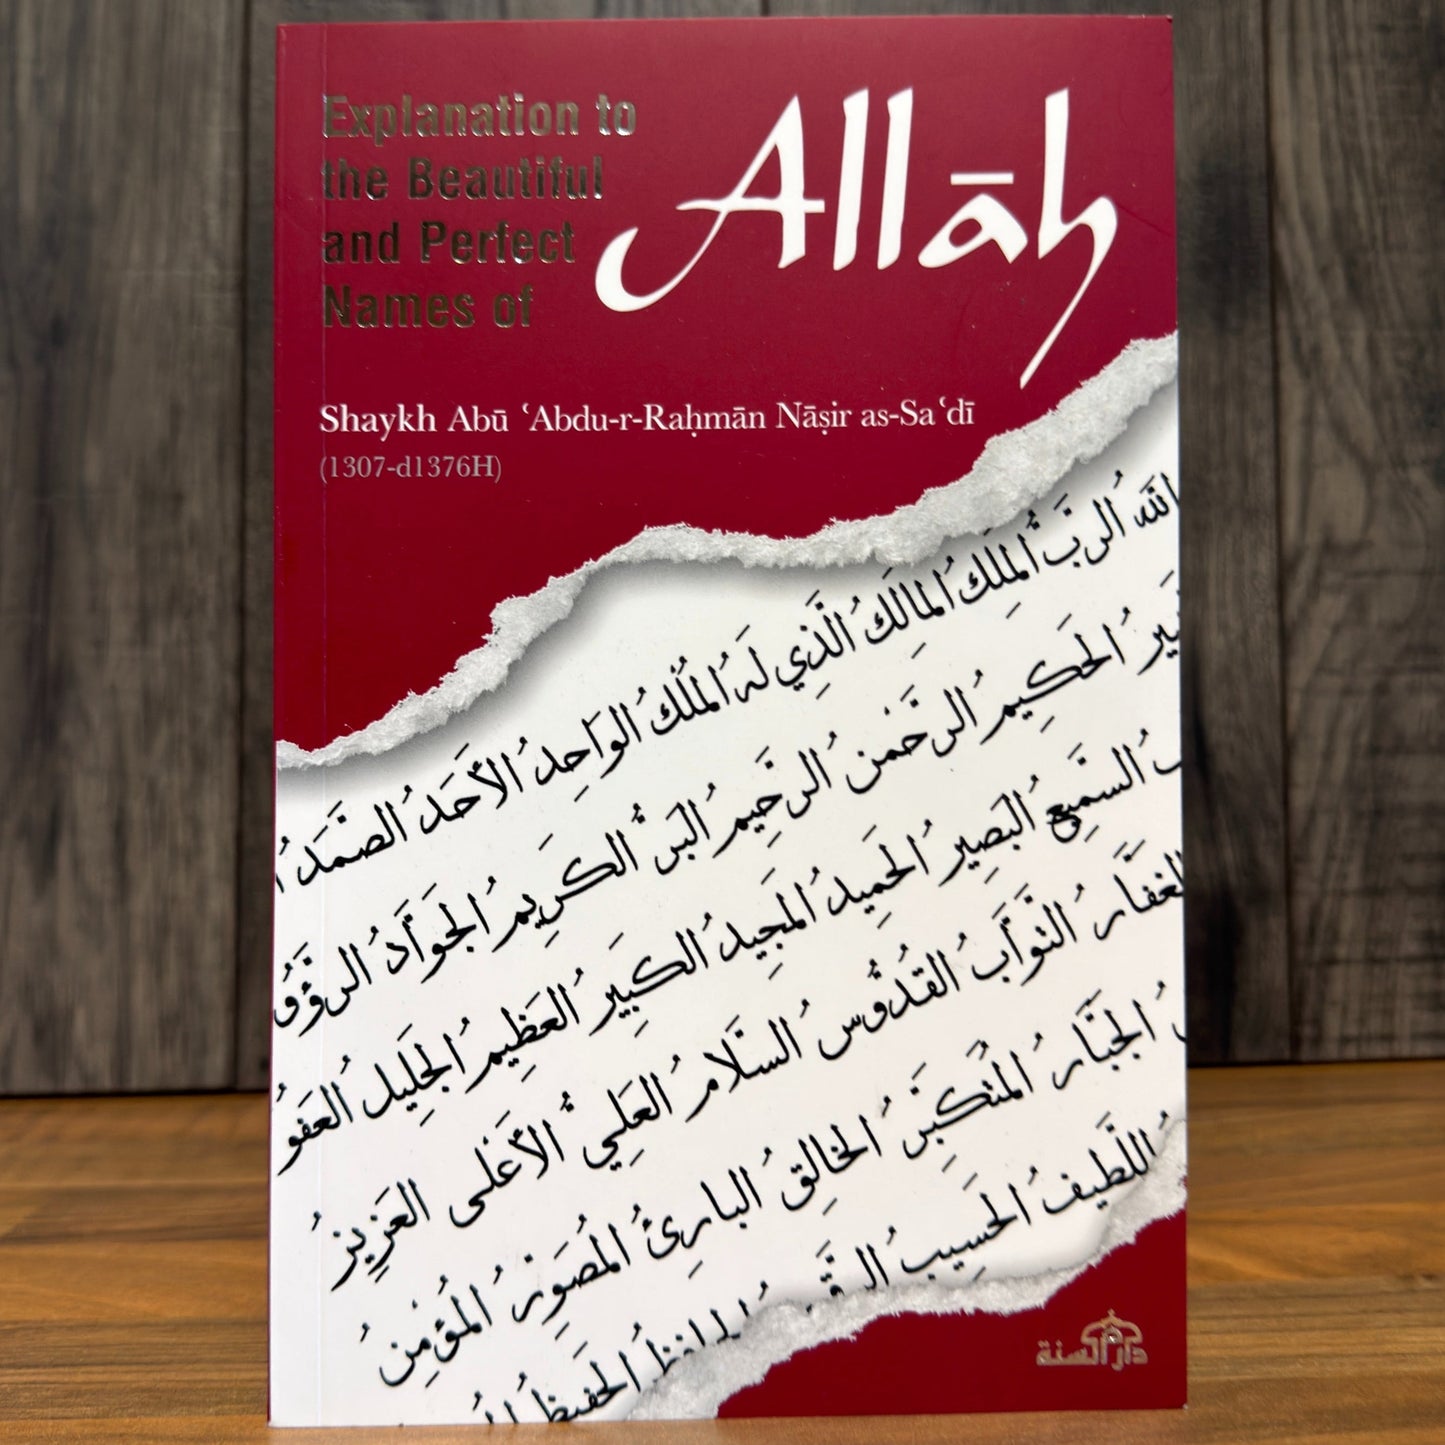 Explanation to
the Beautiful
and Perfect
Names of
Allāh
Shaykh Abū ʿAbdu-r-Raḥmān Nāṣir as-Saʿdī
(1307-d1376H)
اللهُ الرَبُّ المَلِكُ المالِكُ الَّذِي لَهُ المُلْكُ الوَاحِدُ الأَحَدُ الصَّمَدُ
الحَكِيمُ الرَحْمٰنُ الرَّحِيمُ البَرُّ الكَرِيمُ الجَوَّادُ الرؤُو
السَّمِيعُ البَصِيرُ الحَمِيدُ المَجِيدُ الكَبِيرُ العَظِيمُ الجَلِيلُ العَفُو
الغفَّارُ التَوَّابُ القُدُّوسُ السَّلامُ العَلِيُّ الأَعْلى العَزِيزُ
الجَبَّارُ المُتَكَبِّرُ الخَالِقُ البارِئُ المُصَوِّرُ المُؤْمِنُ
اللَّطِيفُ الحَسِيبُ
الحَفِيظُ
دار السنة